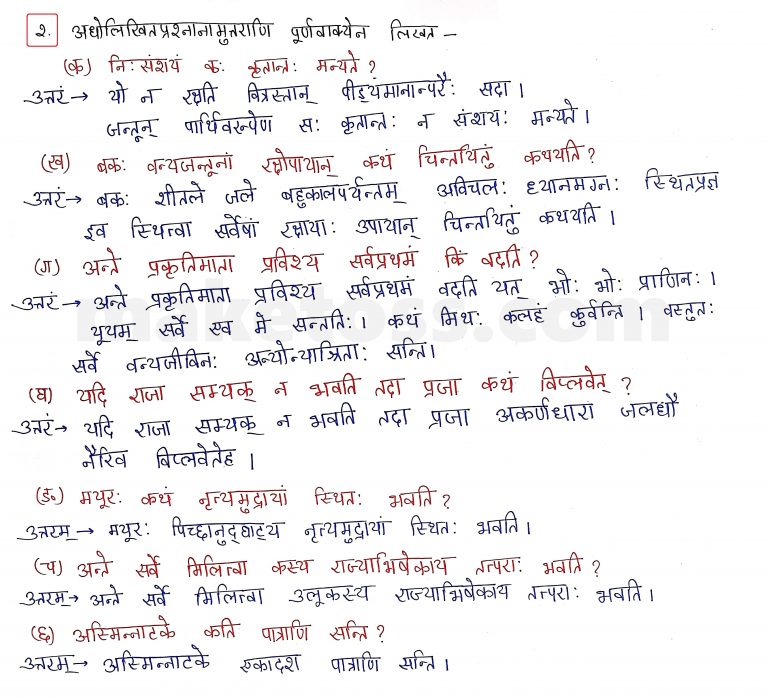 २. अधोलिखितप्रश्नानामुत्तराणि पूर्णवाक्येन लिखत –
(क) निःसंशयं कः कृतान्तः मन्यते ?
उत्तरं → यो न रक्षति वित्रस्तान् पीड्यमानान्परैः सदा ।
जन्तून् पार्थिवरूपेण सः कृतान्तः न संशयः मन्यते ।
(ख) बकः वन्यजन्तूनां रक्षोपायान् कथं चिन्तयितुं कथयति ?
उत्तरं → बकः शीतले जले बहुकालपर्यन्तम् अविचलः ध्यानमग्नः स्थितप्रज्ञ
इव स्थित्वा सर्वेषां रक्षायाः उपायान् चिन्तयितुं कथयति ।
(ग) अन्ते प्रकृतिमाता प्रविश्य सर्वप्रथमं किं वदति ?
उत्तरं → अन्ते प्रकृतिमाता प्रविश्य सर्वप्रथमं वदति यत् भोः भोः प्राणिनः ।
यूयम् सर्वे एव मे सन्ततिः । कथं मिथः कलहं कुर्वन्ति । वस्तुतः
सर्वे वन्यजीविनः अन्योन्याश्रिताः सन्ति।
(घ) यदि राजा सम्यक् न भवति तदा प्रजा कथं विप्लवेत् ?
उत्तरं → यदि राजा सम्यक् न भवति तदा प्रजा अकर्णधारा जलधौ
नैरिव विप्लवेतेह ।
(ङ) मयूरः कथं नृत्यमुद्रायां स्थितः भवति ?
उत्तरम् → मयूरः पिच्छानुद्घाट्य नृत्यमुद्रायां स्थितः भवति ।
(च) अन्ते सर्वे मिलित्वा कस्य राज्याभिषेकाय तत्पराः भवति ?
उत्तरम् → अन्ते सर्वे मिलित्वा उलूकस्य राज्याभिषेकाय तत्पराः भवति ।
(छ) अस्मिन्नाटके कति पात्राणि सन्ति ?
उत्तरम् → अस्मिन्नाटके एकादश पात्राणि सन्ति ।